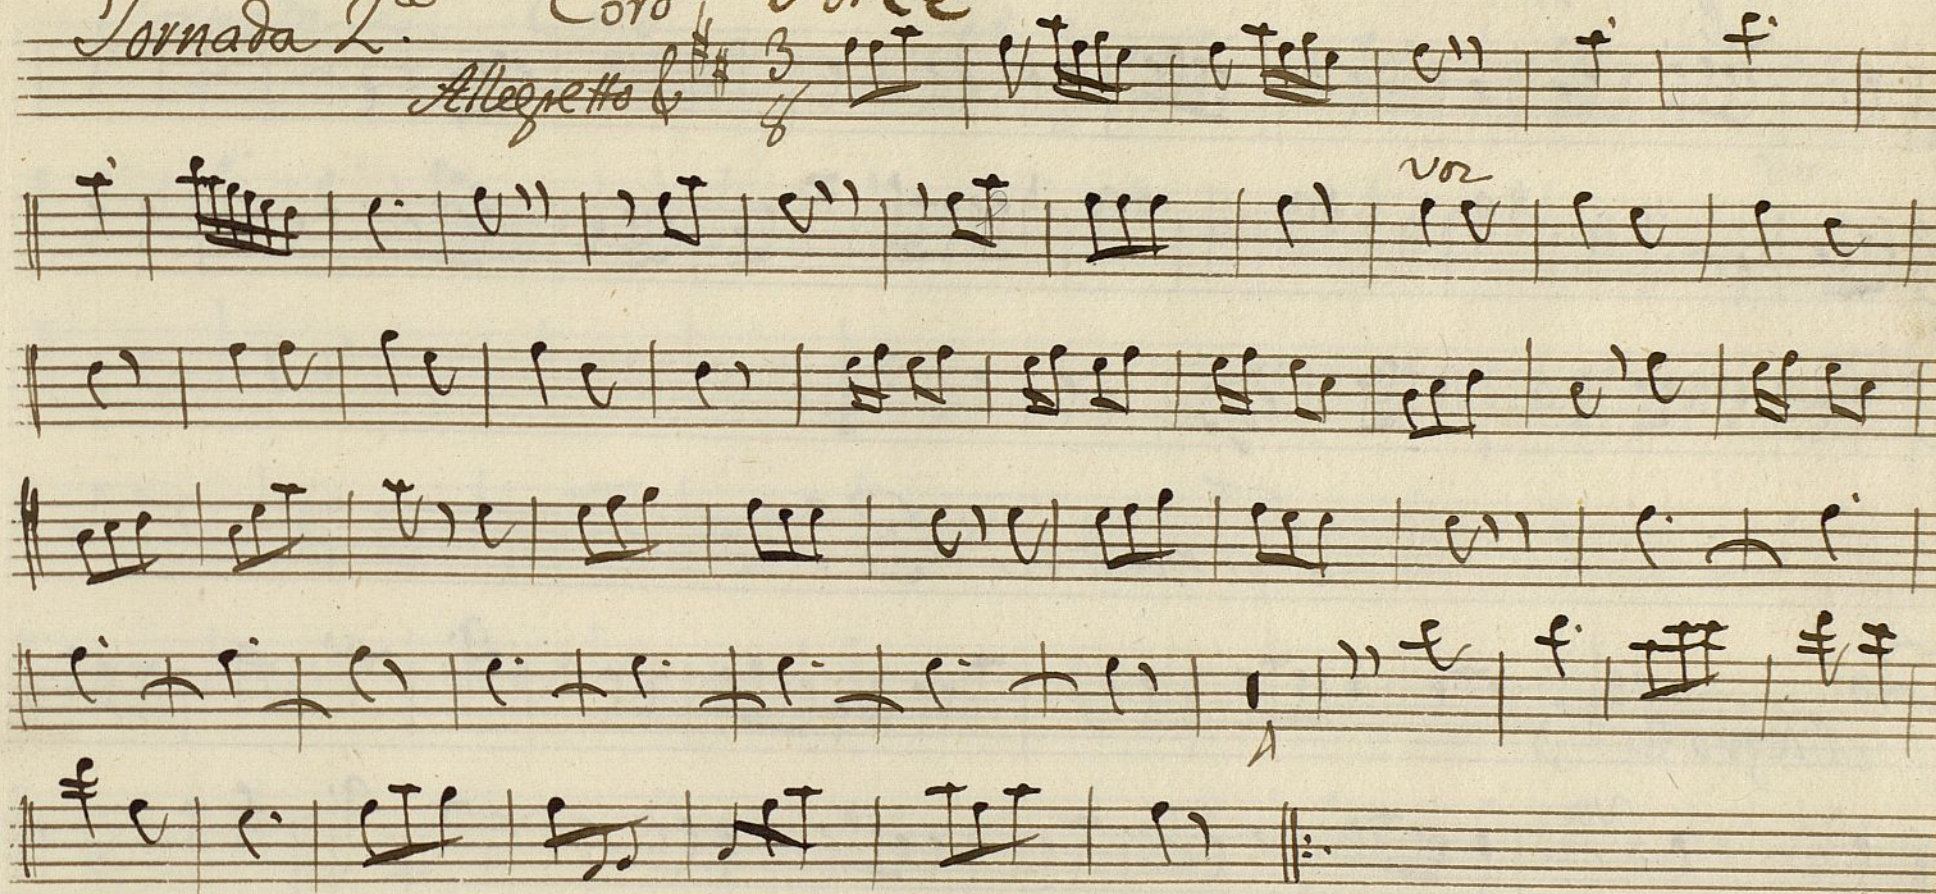 Jornada 2.ª Coro
Allegretto 3 8
voz